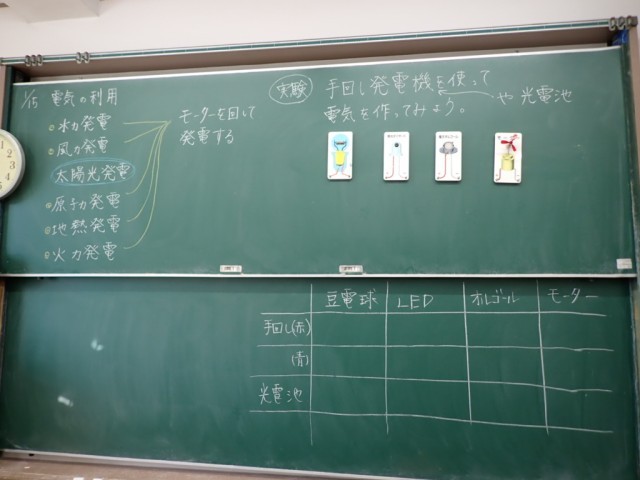 1/15 電気の利用
水力発電
風力発電
太陽光発電
原子力発電
地熱発電
火力発電
モーターを回して
発電する
実験
手回し発電機を使って
や光電池
電気を作ってみよう。
豆電球 LED オルゴール モーター
手回し(赤)
(青)
光電池